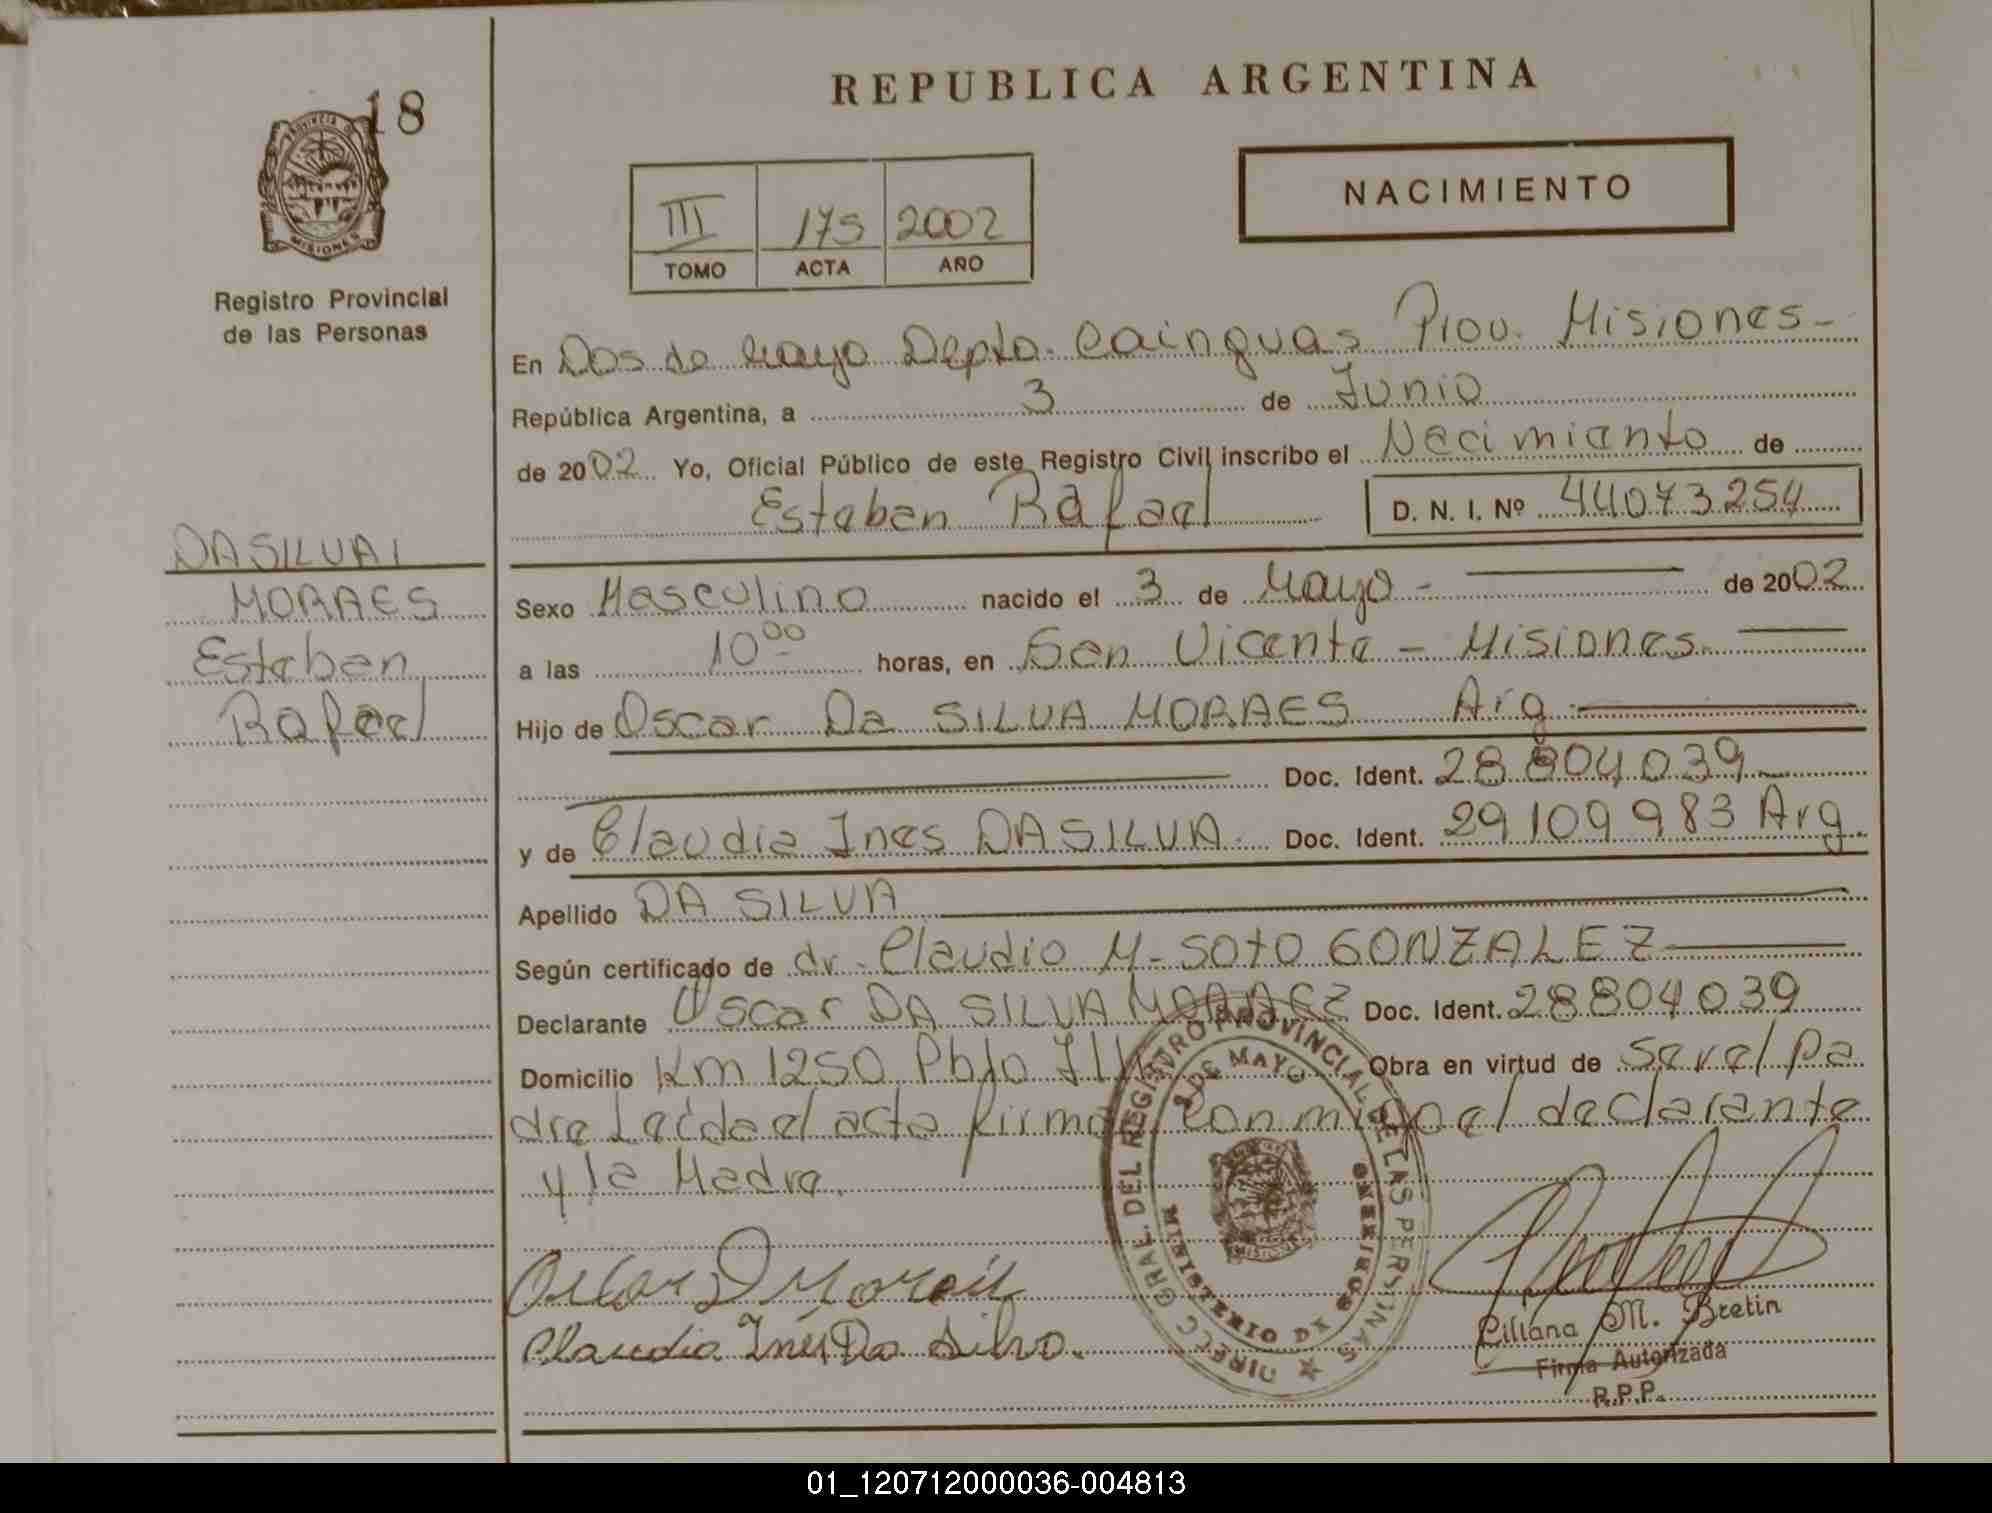 18
PROVINCIA DE
MISIONES
Registro Provincial
de las Personas
REPUBLICA ARGENTINA
NACIMIENTO
III 175 2002
TOMO ACTA AÑO
DASILVA
MORAES
Esteban
Rafael
En Dos de Mayo Depto. Cainguas Prov. Misiones-
República Argentina, a 3 de Junio
de 2002 Yo, Oficial Público de este Registro Civil inscribo el Nacimiento de
Esteban Rafael D. N. I. Nº 44073254
Sexo Masculino nacido el 3 de Mayo - de 2002
a las 10 00 horas, en San Vicente - Misiones
Hijo de Oscar Da SILVA MORAES Arg
Doc. Ident. 28 804 039
y de Claudia Ines DASILVA Doc. Ident. 29109983 Arg.
Apellido DA SILVA
Según certificado de dr. Claudio M- SOTO GONZALEZ
Declarante Oscar DA SILVA MORAEZ Doc. Ident. 28804039
Domicilio Km 1250 Pblo Obra en virtud de ser el Pa
dre Leída el acta firma conmigo el declarante
y la Madre.
DIREC. GRAL. DEL REGISTRO PROVINCIAL DE LAS PERSONAS
2 DE MAYO
MINISTERIO DE GOBIERNO
MISIONES
Oscar D Moraes
Claudia Inés Da Silva.
Liliana M. Bretin
Firma Autorizada
R.P.P.
01_120712000036-004813